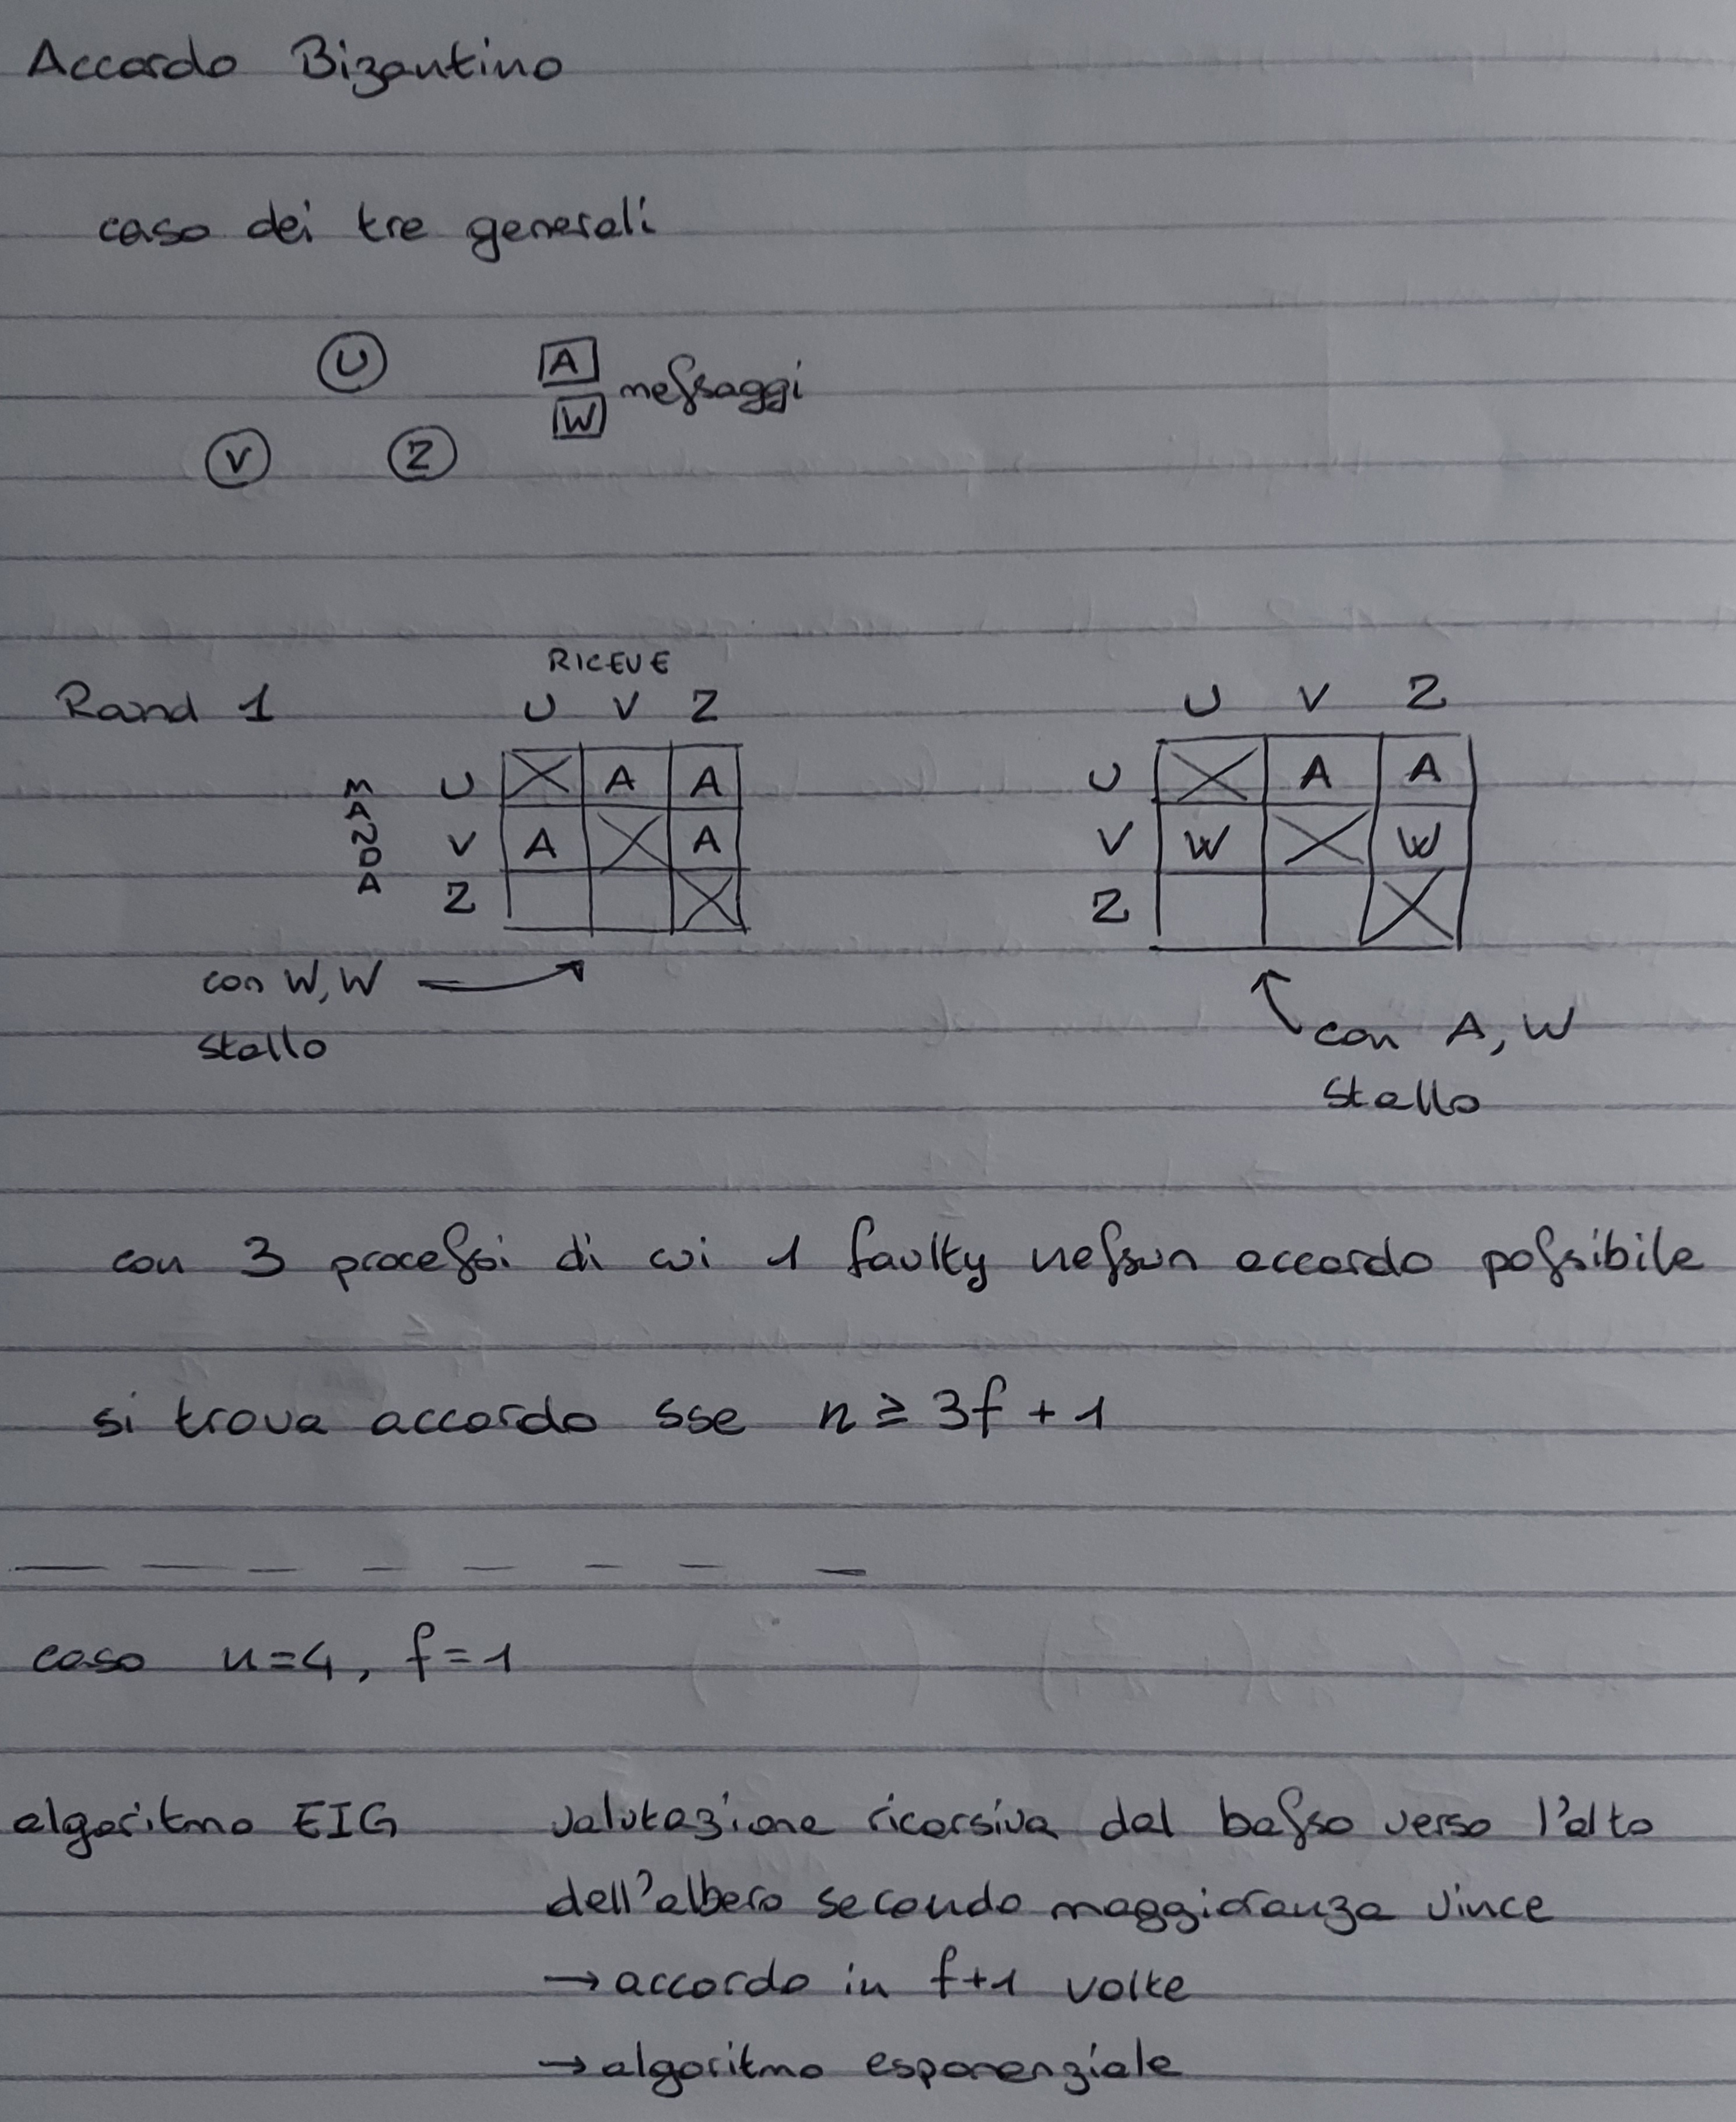 Accordo Bizantino
caso dei tre generali
U
A
messaggi
W
V Z
RICEVE
Round 1 U V Z U V Z
MANDA
U A A U A A
V A A V W W
Z Z
con W, W
stallo
con A, W
stallo
con 3 processi di cui 1 faulty nessun accordo possibile
si trova accordo sse n ≥ 3f + 1
caso n=4, f=1
algoritmo EIG valutazione ricorsiva dal basso verso l'alto
dell'albero secondo maggioranza vince
→ accordo in f+1 volte
→ algoritmo esponenziale